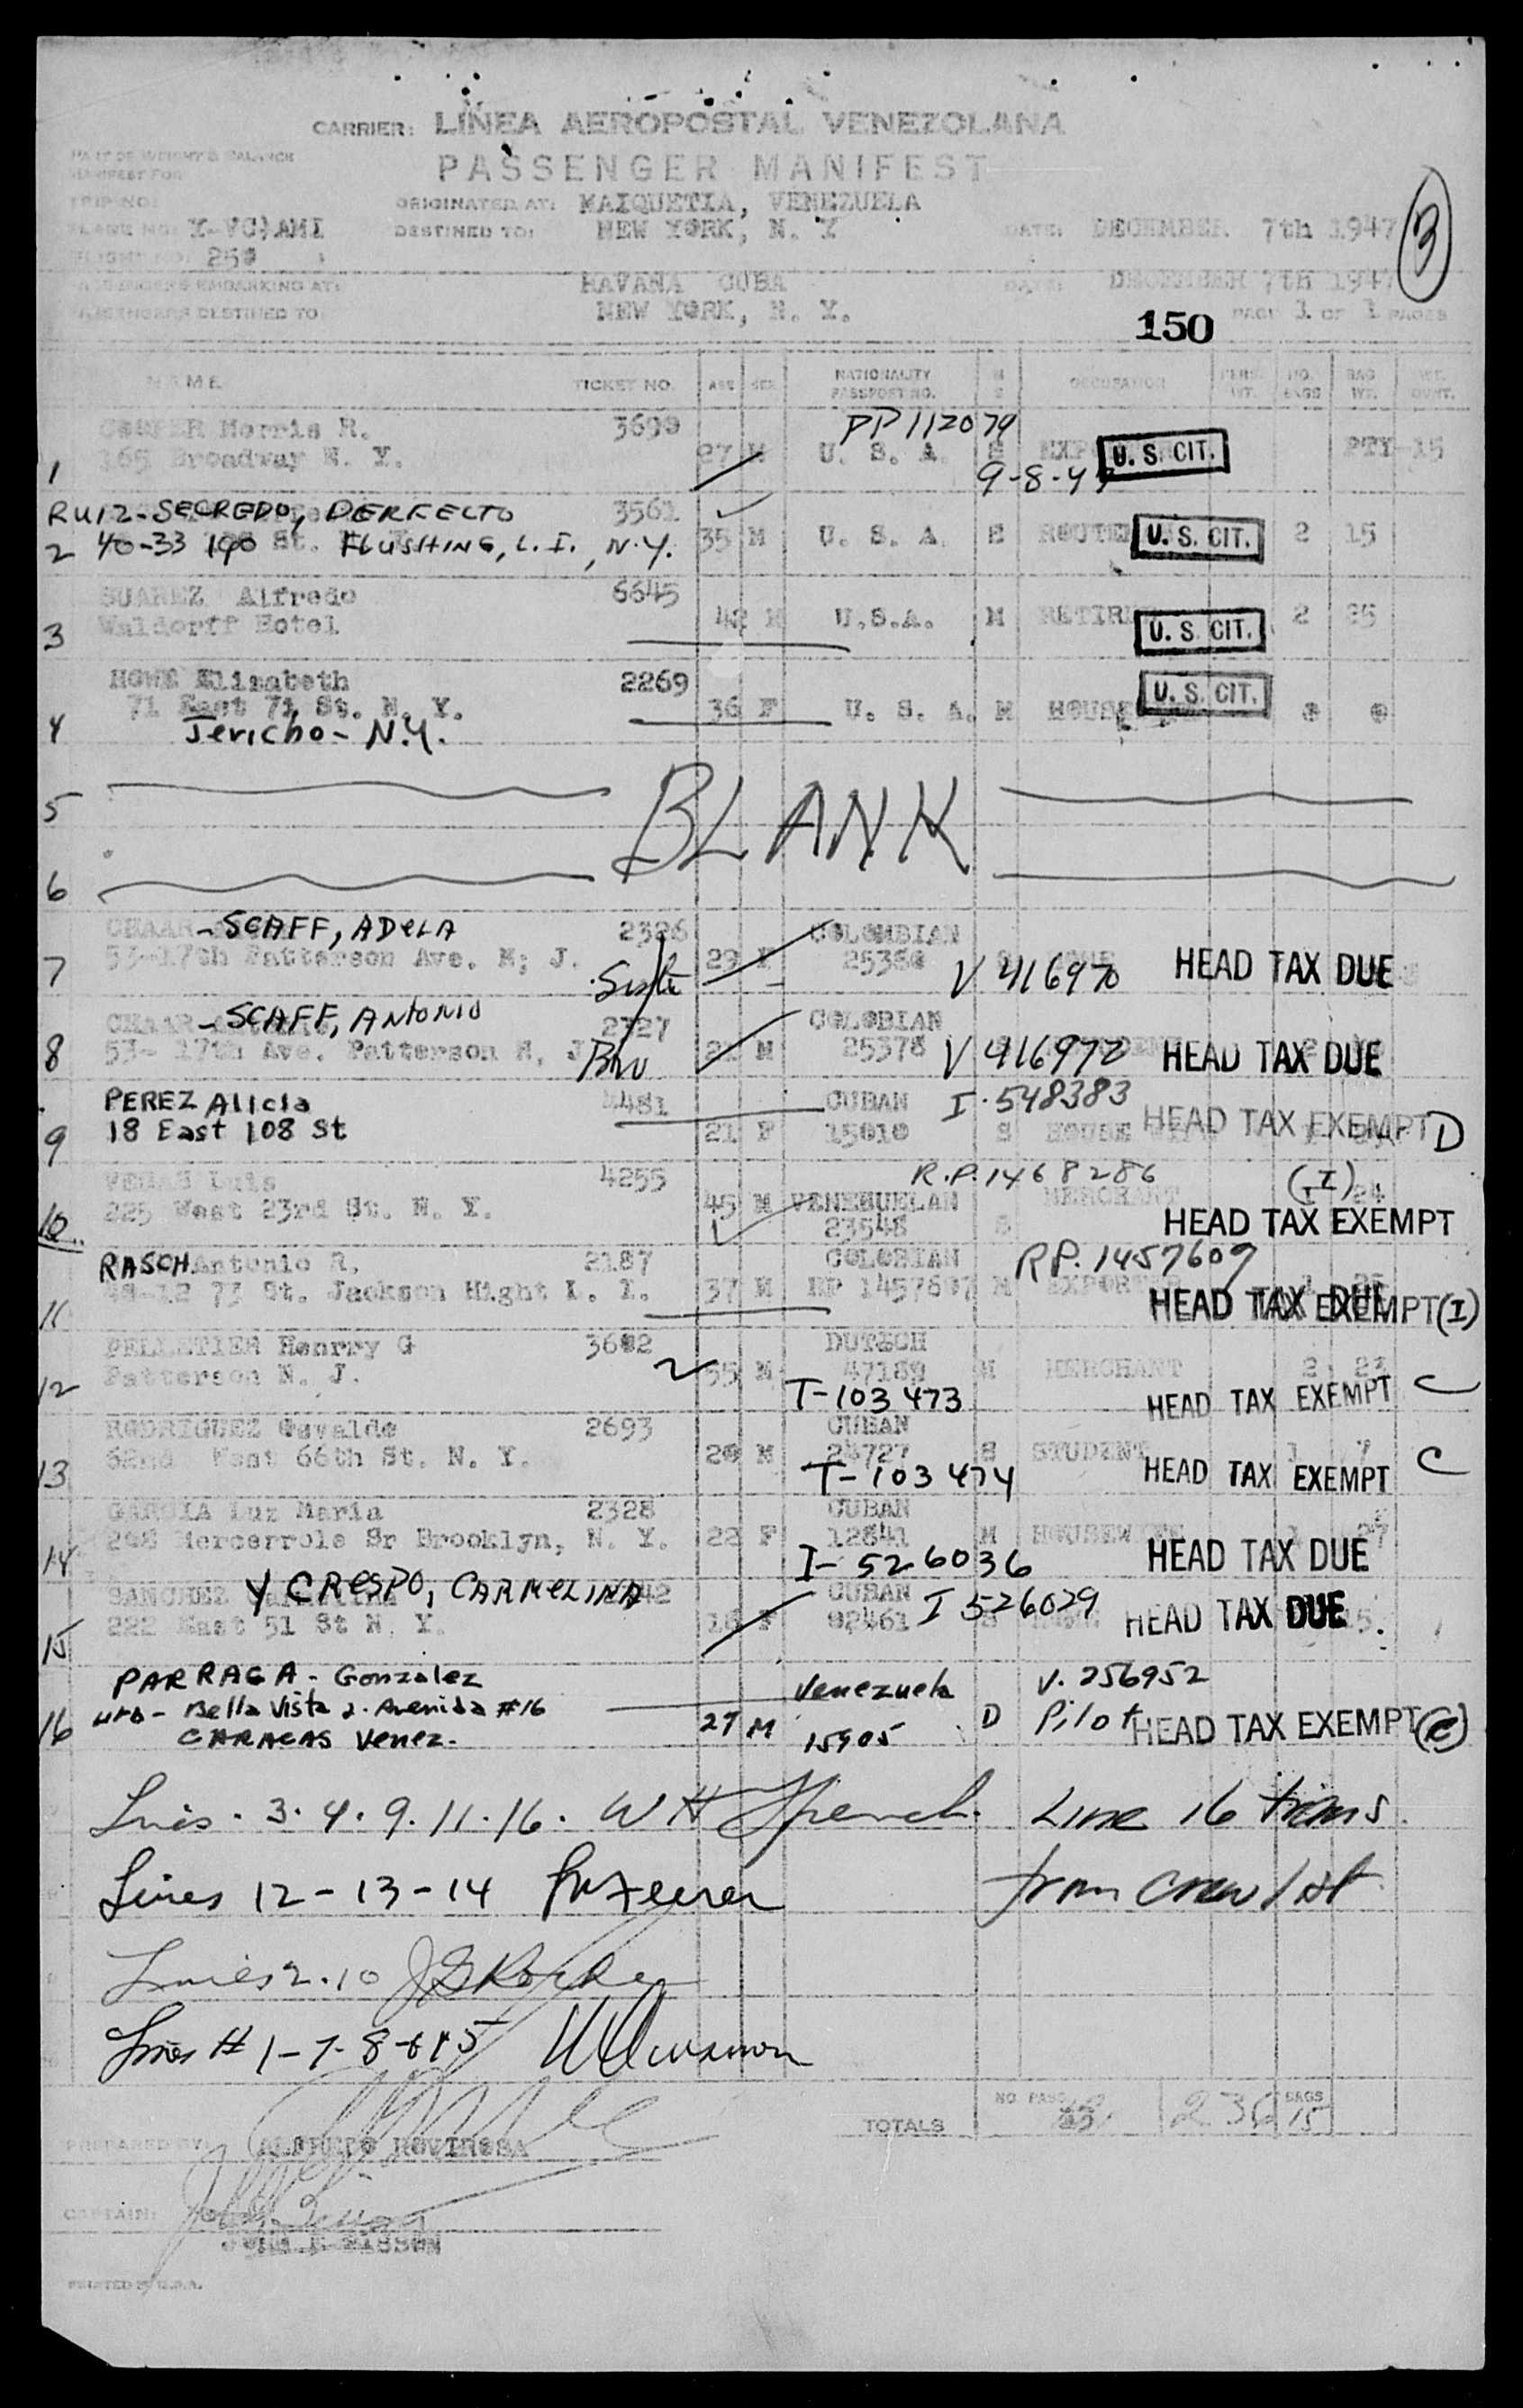 CARRIER: LINEA AEROPOSTAL VENEZOLANA
PART OF WEIGHT & BALANCE
MANIFEST FOR
PASSENGER MANIFEST
TRIP NO:
ORIGINATED AT: MAIQUETIA, VENEZUELA
PLANE NO: Y-VC-AMI DESTINED TO: NEW YORK, N. Y DATE: DECEMBER 7th 1947
3
FLIGHT NO: 250
PASSENGERS EMBARKING AT: HAVANA CUBA DATE: DECEMBER 7th 1947
PASSENGERS DESTINED TO NEW YORK, N. Y. PAGE 1 OF 1 PAGES
150
NAME TICKET NO. AGE SEX NATIONALITY PASSPORT NO. M S OCCUPATION PERS. WT. NO. BAGS BAG WT.
Morris R. 3690 PP 112079
1 165 Broadway N. Y. 27 M U. S. A. S U. S. CIT. 15
9-8-47
RUIZ-SECREDO, PERFECTO 3561
2 40-33 190 St. FLUSHING, L.I., N.Y. 35 M U. S. A. S U. S. CIT. 2 15
SUAREZ Alfredo 6645
3 Waldorff Hotel 42 M U.S.A. M RETIR U. S. CIT. 2 35
HOWE Elisabeth 2269
71 East 71 St. N. Y. 36 F U. S. A. M HOUSE U. S. CIT. 0 0
4 Jericho - N.Y.
5
BLANK
6
CHAAR - SCAFF, ADELA 2326 COLOMBIAN
7 53-17th Patterson Ave. N; J. Sister 23 F 25380 V 416970 HEAD TAX DUE
CHAAR - SCAFF, ANTONIO 2327 COLOBIAN
8 53- 17th Ave. Patterson N, J Bro 22 M 25378 V 416972 HEAD TAX DUE
PEREZ Alicia 4481 CUBAN I-548383
9 18 East 108 St 21 F 15010 S HOUSE HEAD TAX EXEMPT D
VEGAS Luis 4255 R.P. 1468286 (I)
10 225 West 23rd St. N. Y. 45 M VENEZUELAN MERCHANT 24
23548 S HEAD TAX EXEMPT
RASCH Antonio R, 2187 COLOBIAN RP. 1457609
11 73 St. Jackson Hight L. I. 37 M RP 1457607 M EXPORTER HEAD TAX DUE
HEAD TAX EXEMPT (I)
PELLETIER Henrry G 3602 DUTSCH
12 Patterson N. J. 55 M 47189 M MERCHANT 2 23
T-103473 HEAD TAX EXEMPT C
RODRIGUEZ Osvaldo 2693 CUBAN
13 62nd West 66th St. N. Y. 20 M 24727 S STUDENT 1 7
T-103474 HEAD TAX EXEMPT C
GARCIA Luz Maria 2328 CUBAN
14 Brooklyn, N. Y. 22 F 12841 M HOUSEWIFE 1 27
I-526036 HEAD TAX DUE
SANCHEZ Y CRESPO, CARMELINA CUBAN I 526029
15 222 East 51 St N. Y. 18 F 92461 S HEAD TAX DUE
PARRAGA - Gonzalez Venezuela V. 256952
16 Urb - Bella Vista 2. Avenida #16 27 M 15905 D Pilot HEAD TAX EXEMPT (C)
CARACAS Venez.
Lines . 3. 4. 9. 11. 16. W H French. Line 16 trans
from crew list
Lines 12-13-14
Lines 2. 10
Lines # 1-7-8-15
TOTALS NO PASS. 236 BAGS 15
PREPARED BY: ALBERTO ROVIROSA
CAPTAIN:
PRINTED IN U.S.A.